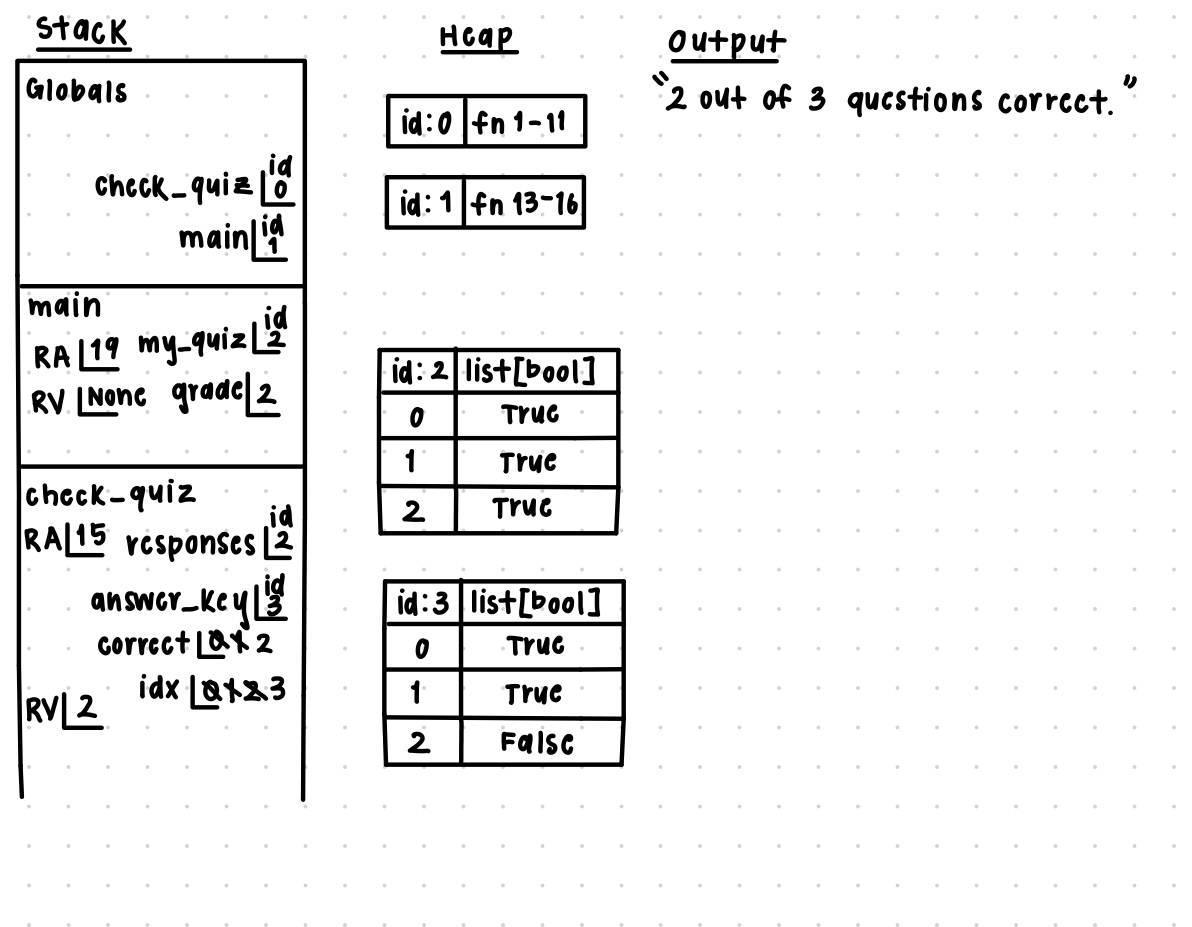 Stack
Globals
check_quiz id 0
main id 1
main
RA 19 my_quiz id 2
RV None grade 2
check_quiz
RA 15 responses id 2
answer_key id 3
correct 0 1 2
idx 0 1 2 3
RV 2
Heap
id:0 fn 1-11
id:1 fn 13-16
id:2 list[bool]
0 True
1 True
2 True
id:3 list[bool]
0 True
1 True
2 False
Output
"2 out of 3 questions correct."